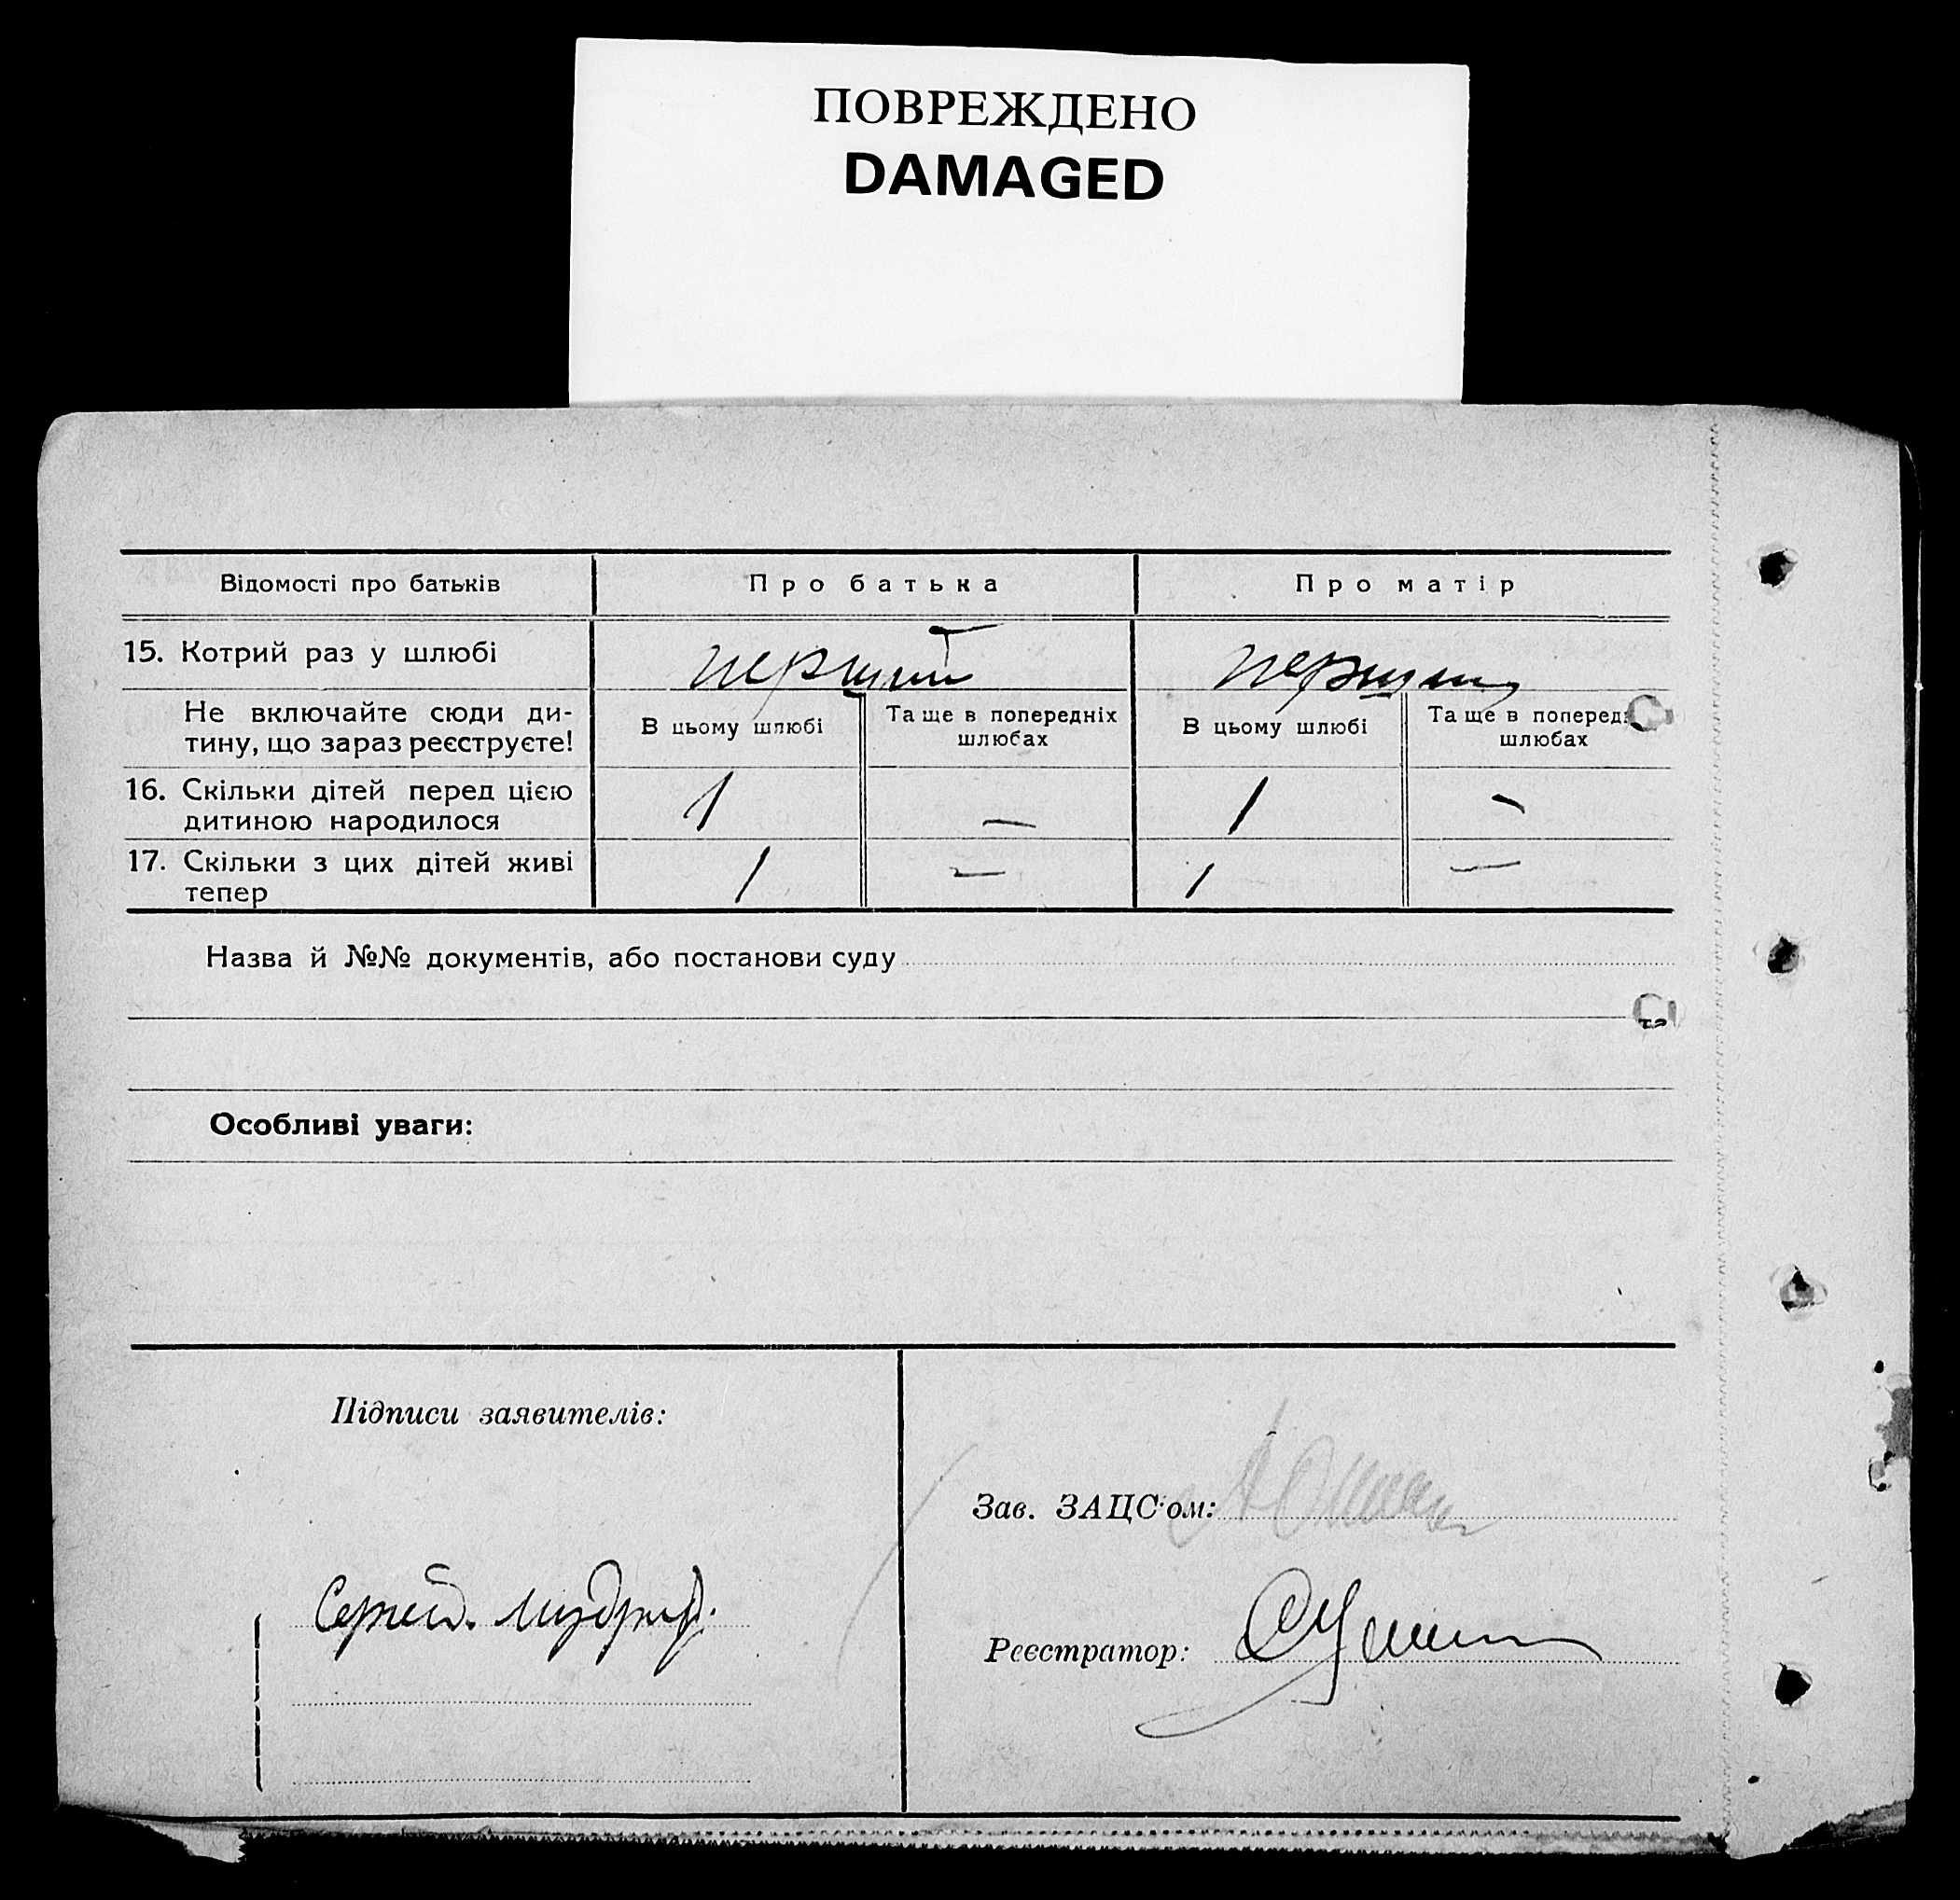 ПОВРЕЖДЕНО
DAMAGED
Відомості про батьків
Про батька
Про матір
15. Котрий раз у шлюбі
первый
Не включайте сюди ди-
тину, що зараз реєструєте!
В цьому шлюбі
Та ще в попередніх
шлюбах
В цьому шлюбі
Та ще в поперед
шлюбах
16. Скільки дітей перед цією
дитиною народилося
1
—
1
—
17. Скільки з цих дітей живі
тепер
1
—
1
—
Назва й №№ документів, або постанови суду
Особливі уваги:
Підписи заявителів:
Зав. ЗАЦС'ом:
Сергей
Реєстратор: